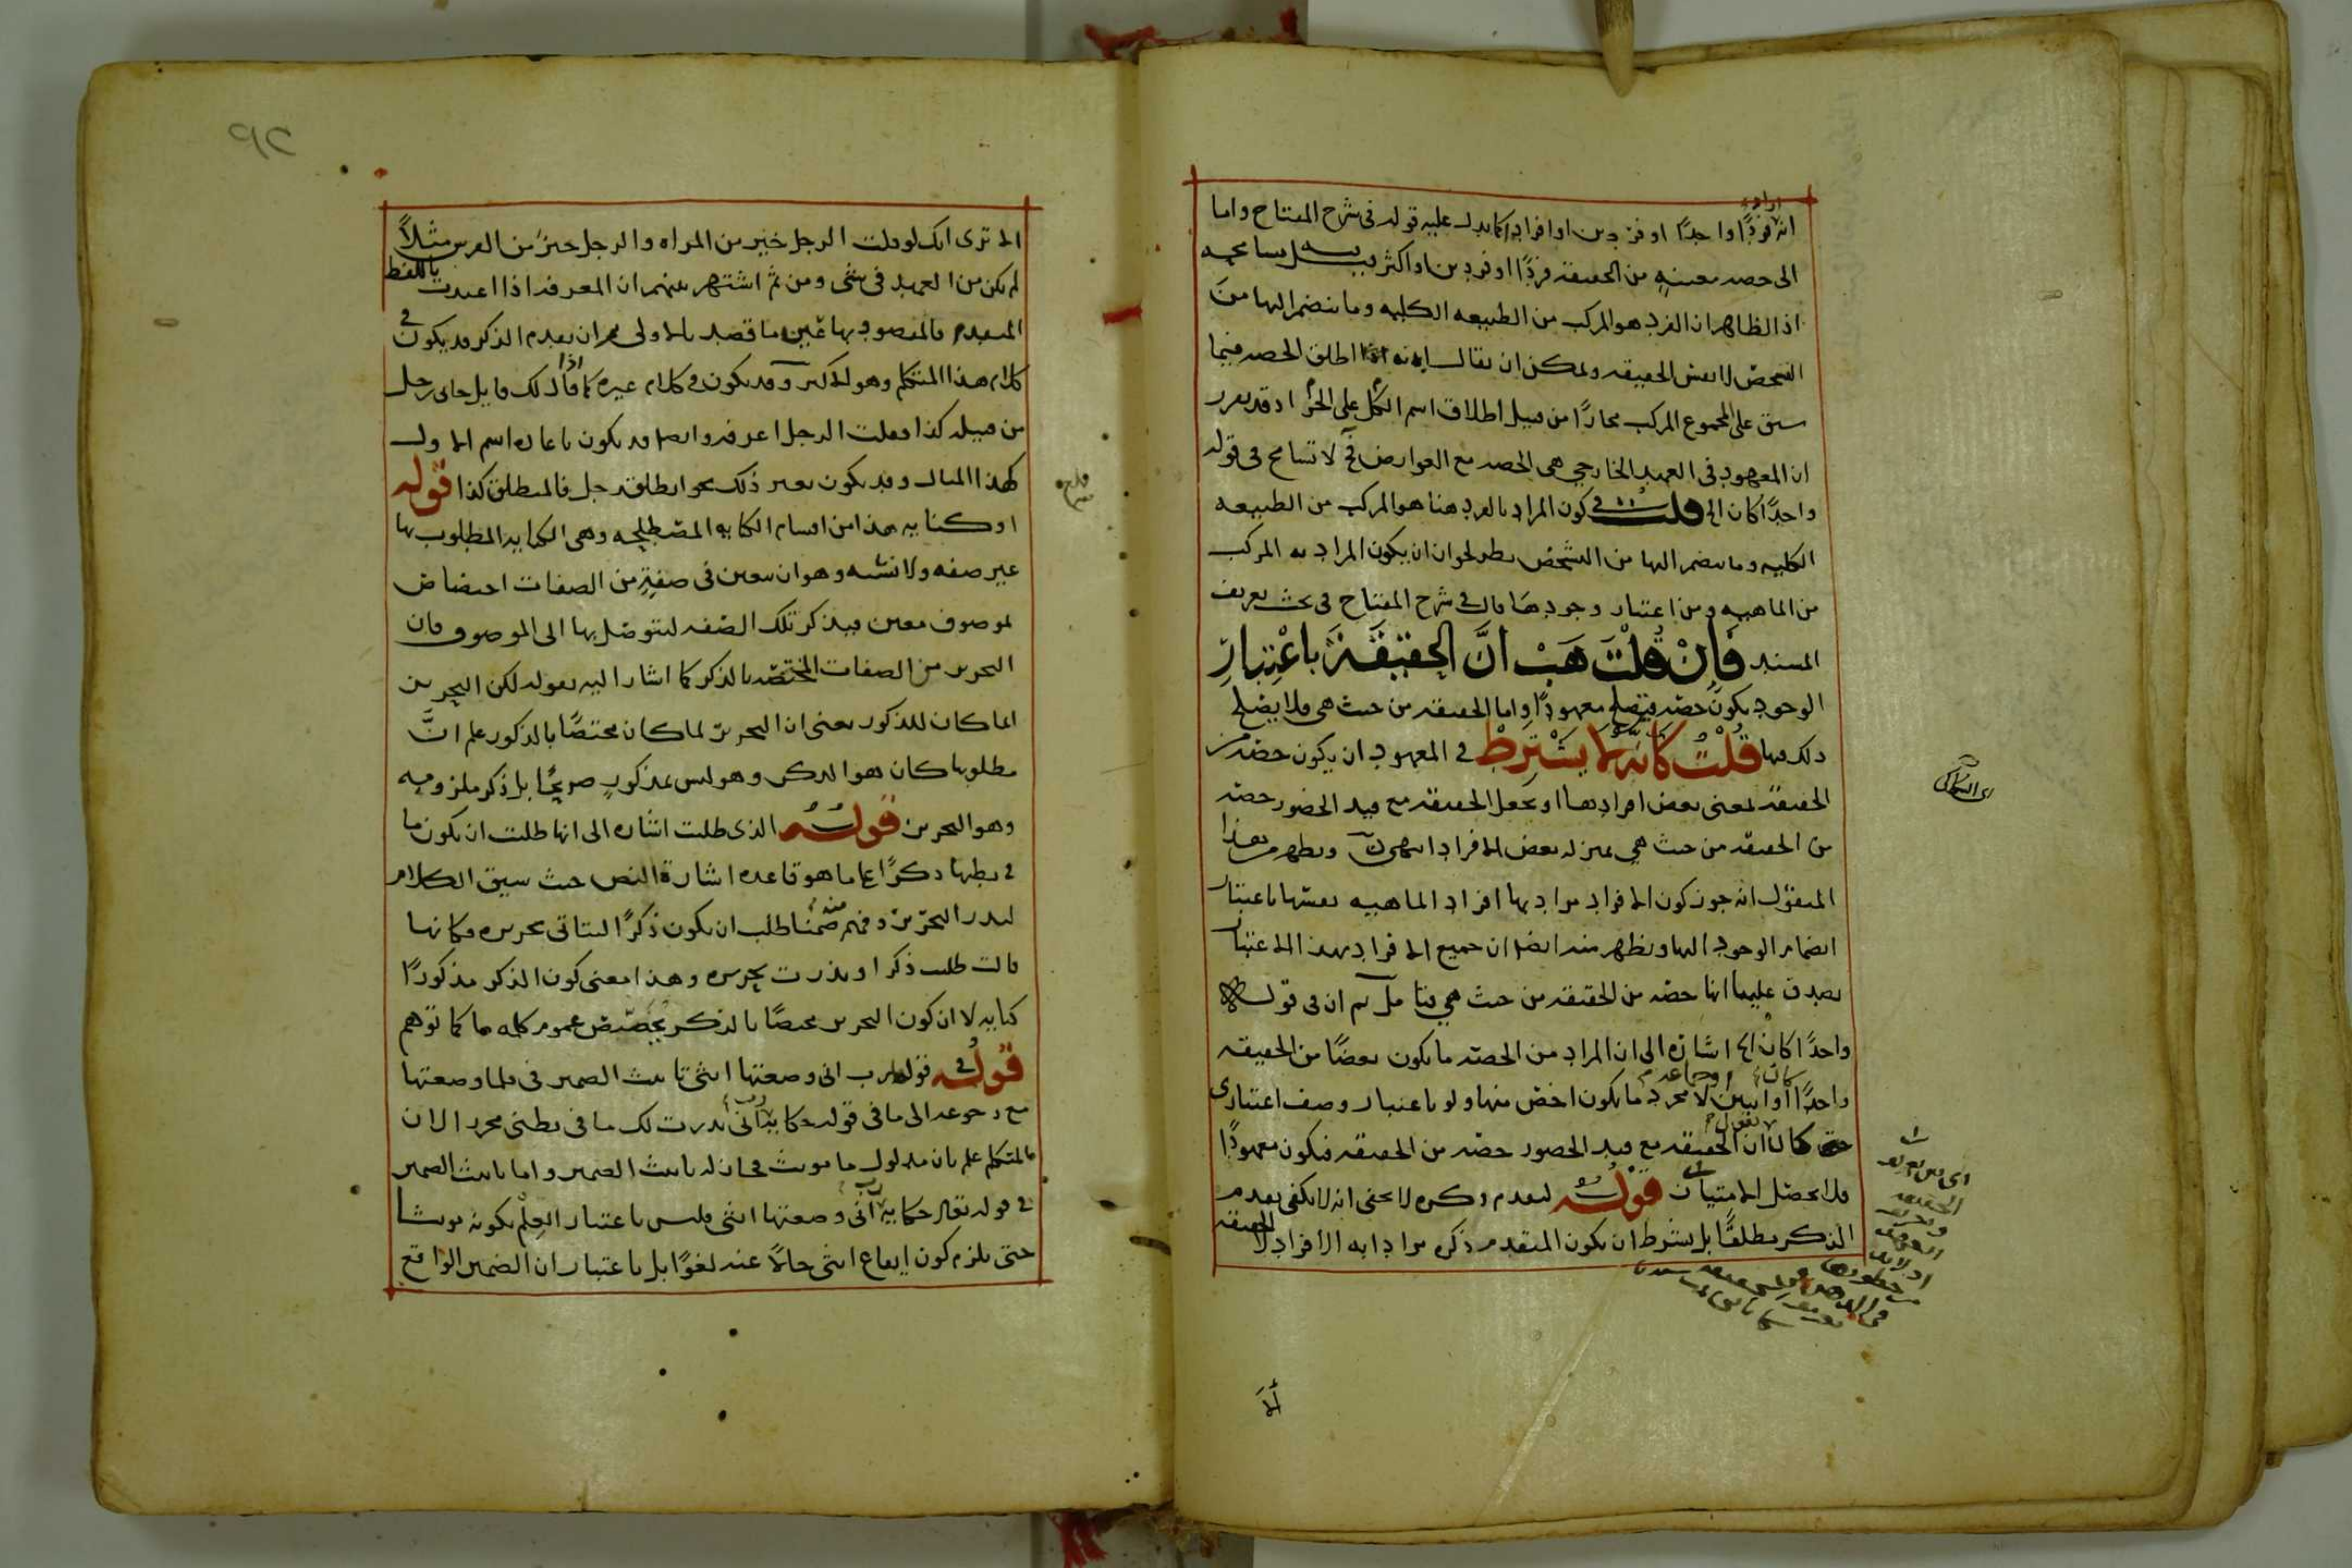 انه فردًا واحدًا او فردين او افرادا كما يدل عليه قوله في شرح المفتاح واما
الى حصه معينةٍ من الحقيقه فردًا او فردين او اكثر ففيه مسامحه
اذ الظاهر ان الفرد هو المركب من الطبيعه الكليه وما ينضم اليها من
التشخص لا نفس الحقيقه ويمكن ان يقال انه اطلق الحصه فيما
سبق على المجموع المركب مجازًا من قبيل اطلاق اسم الكل على الجزء او قد تقرر
ان المعهود في العهد الخارجي هي الحصه مع العوارض فح لا تسامح في قوله
واحدًا كان الخ قلت في كون المراد بالفرد هنا هو المركب من الطبيعه
الكليه وما ينضم اليها من التشخص نظر لجواز ان يكون المراد به المركب
من الماهيه ومن اعتبار وجودها قال في شرح المفتاح في بحث تعريف
المسند فَاِنْ قُلْتَ هَبْ انَّ الحقيقَةَ باعْتِبارِ
الوجود يكون حصه فيصلح معهودًا واما الحقيقه من حيث هي فلا يصلح
ذلك فيها قُلْتُ كَانَّه لم يَشْتَرِطْ في المعهود ان يكون حصه من
الحقيقه بمعنى بعض افرادها او يجعل الحقيقه مع قيد الحضور حصه
من الحقيقه من حيث هي بمنزله بعض الافراد انتهى ويظهر من هذا
المنقول انه جوز كون الافراد مراد بها افراد الماهيه نفسها باعتبار
انضمام الوجود اليها ويظهر منه ايضا ان جميع الافراد بهذا الاعتبار
يصدق عليها انها حصه من الحقيقه من حيث هي فتامل ثم ان في قوله
واحدًا كان الخ اشارة الى ان المراد من الحصه ما يكون بعضًا من الحقيقه
واحدًا كان او اثنين او جماعه لا مجرد ما يكون اخص منها ولو باعتبار وصف اعتباري
حتى يقول ان الحقيقه مع قيد الحضور حصه من الحقيقه فيكون معهودًا
فلا يحصل الامتياز قوله لتقدم ذكره لا يخفى انه لا يكفي تقدم
الذكر مطلقًا بل يشترط ان يكون المتقدم ذكره مرادا به الافراد لا الحقيقه
ألا
الا ترى انك لو قلت الرجل خير من المراه والرجل خير من الفرس مثلاً
لم يكن من العهد في شئ ومن ثم اشتهر بينهم ان المعرفه اذا اعيدت باللفظ
المتقدم فالمقصود بها عين ما قصد بالاولى ثم ان تقدم الذكر قد يكون في
كلام هذا المتكلم وهو الاكثر وقد يكون في كلام غيره كما اذا قال لك قايل جاني رجل
من قبيله كذا فقلت الرجل اعرفه وايضا قد يكون باعاده اسم الاول
كهذا المثال وقد يكون بغير ذلك نحو انطلق رجل فالمنطلق كذا قوله
او كنايه هذا من اقسام الكنايه المصطلحه وهي الكنايه المطلوب بها
غير صفه ولا نسبه وهو ان يتعين في صفةٍ من الصفات اختصاص
لموصوف معين فيذكر تلك الصفه ليتوصل بها الى الموصوف فان
التحرير من الصفات المختصه بالذكر كما اشار اليه بقوله لكن التحرير
انما كان للذكور يعني ان التحرير لما كان مختصًا بالذكور علم انَّ
مطلوبها كان هو الذكر وهو ليس بمذكور صريحًا بل ذكر ملزومه
وهو التحرير قوله الذي طلبت اشاره الى انها طلبت ان يكون ما
في بطنها ذكرًا على ما هو قاعده اشارة النص حيث سيق الكلام
لنذر التحرير وفهم منه ضمنا طلب ان يكون ذكرًا ليتاتى تحريره فكانها
قالت طلبت ذكرا ونذرت تحريره وهذا معنى كون الذكر مذكورًا
كنايه لا ان كون التحرير مختصًا بالذكر يخصص عموم كلمه ما كما توهم
قوله في قوله رب اني وضعتها انثى تانيث الضمير في فلما وضعتها
مع رجوعه الى ما في قوله حكاية رب اني نذرت لك ما في بطني محررا لان
المتكلم علم بان مدلول ما مونث فجاز له تانيث الضمير واما تانيث الضمير
في قوله تعالى حكاية رب اني وضعتها انثى فليس باعتبار العلم بكونه مونثا
حتى يلزم كون ايقاع انثى حالاً عنه لغوًا بل باعتبار ان الضمير الواقع